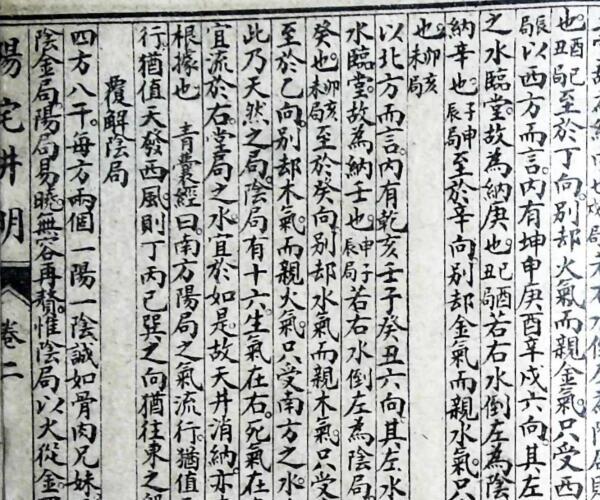 也。酉巳丑局至於丁向。別却火氣而親金氣。只受西
辰局以西方而言。內有坤申庚酉辛戌六向。其左
之水臨堂。故為納庚也。巳酉丑局若右水倒左為陰
納辛也。子申辰局至於辛向。別却金氣而親水氣。只
也。卯亥未局
以北方而言。內有乾亥壬子癸丑六向。其左水
水臨堂。故為納壬也。申子辰局若右水倒左為陰局
癸也。卯亥未局至於癸向。別却水氣而親木氣。只受
至於乙向。別却木氣而親火氣。只受南方之水
此乃天然之局。陰局有十六。生氣在右。死氣在
宜流於右。堂局之水。宜於如是。故天井消納。亦
根據也 青囊經曰。南方陽局之氣流行。猶值
行。猶值大發西風。則丁丙巳巽之向。猶往東之
覆解陰局
四方八干。每方兩個。一陽一陰。誠如骨肉兄妹
陰金局。陽局易曉。無容再贅。惟陰局以火從金
陽宅井明
卷二